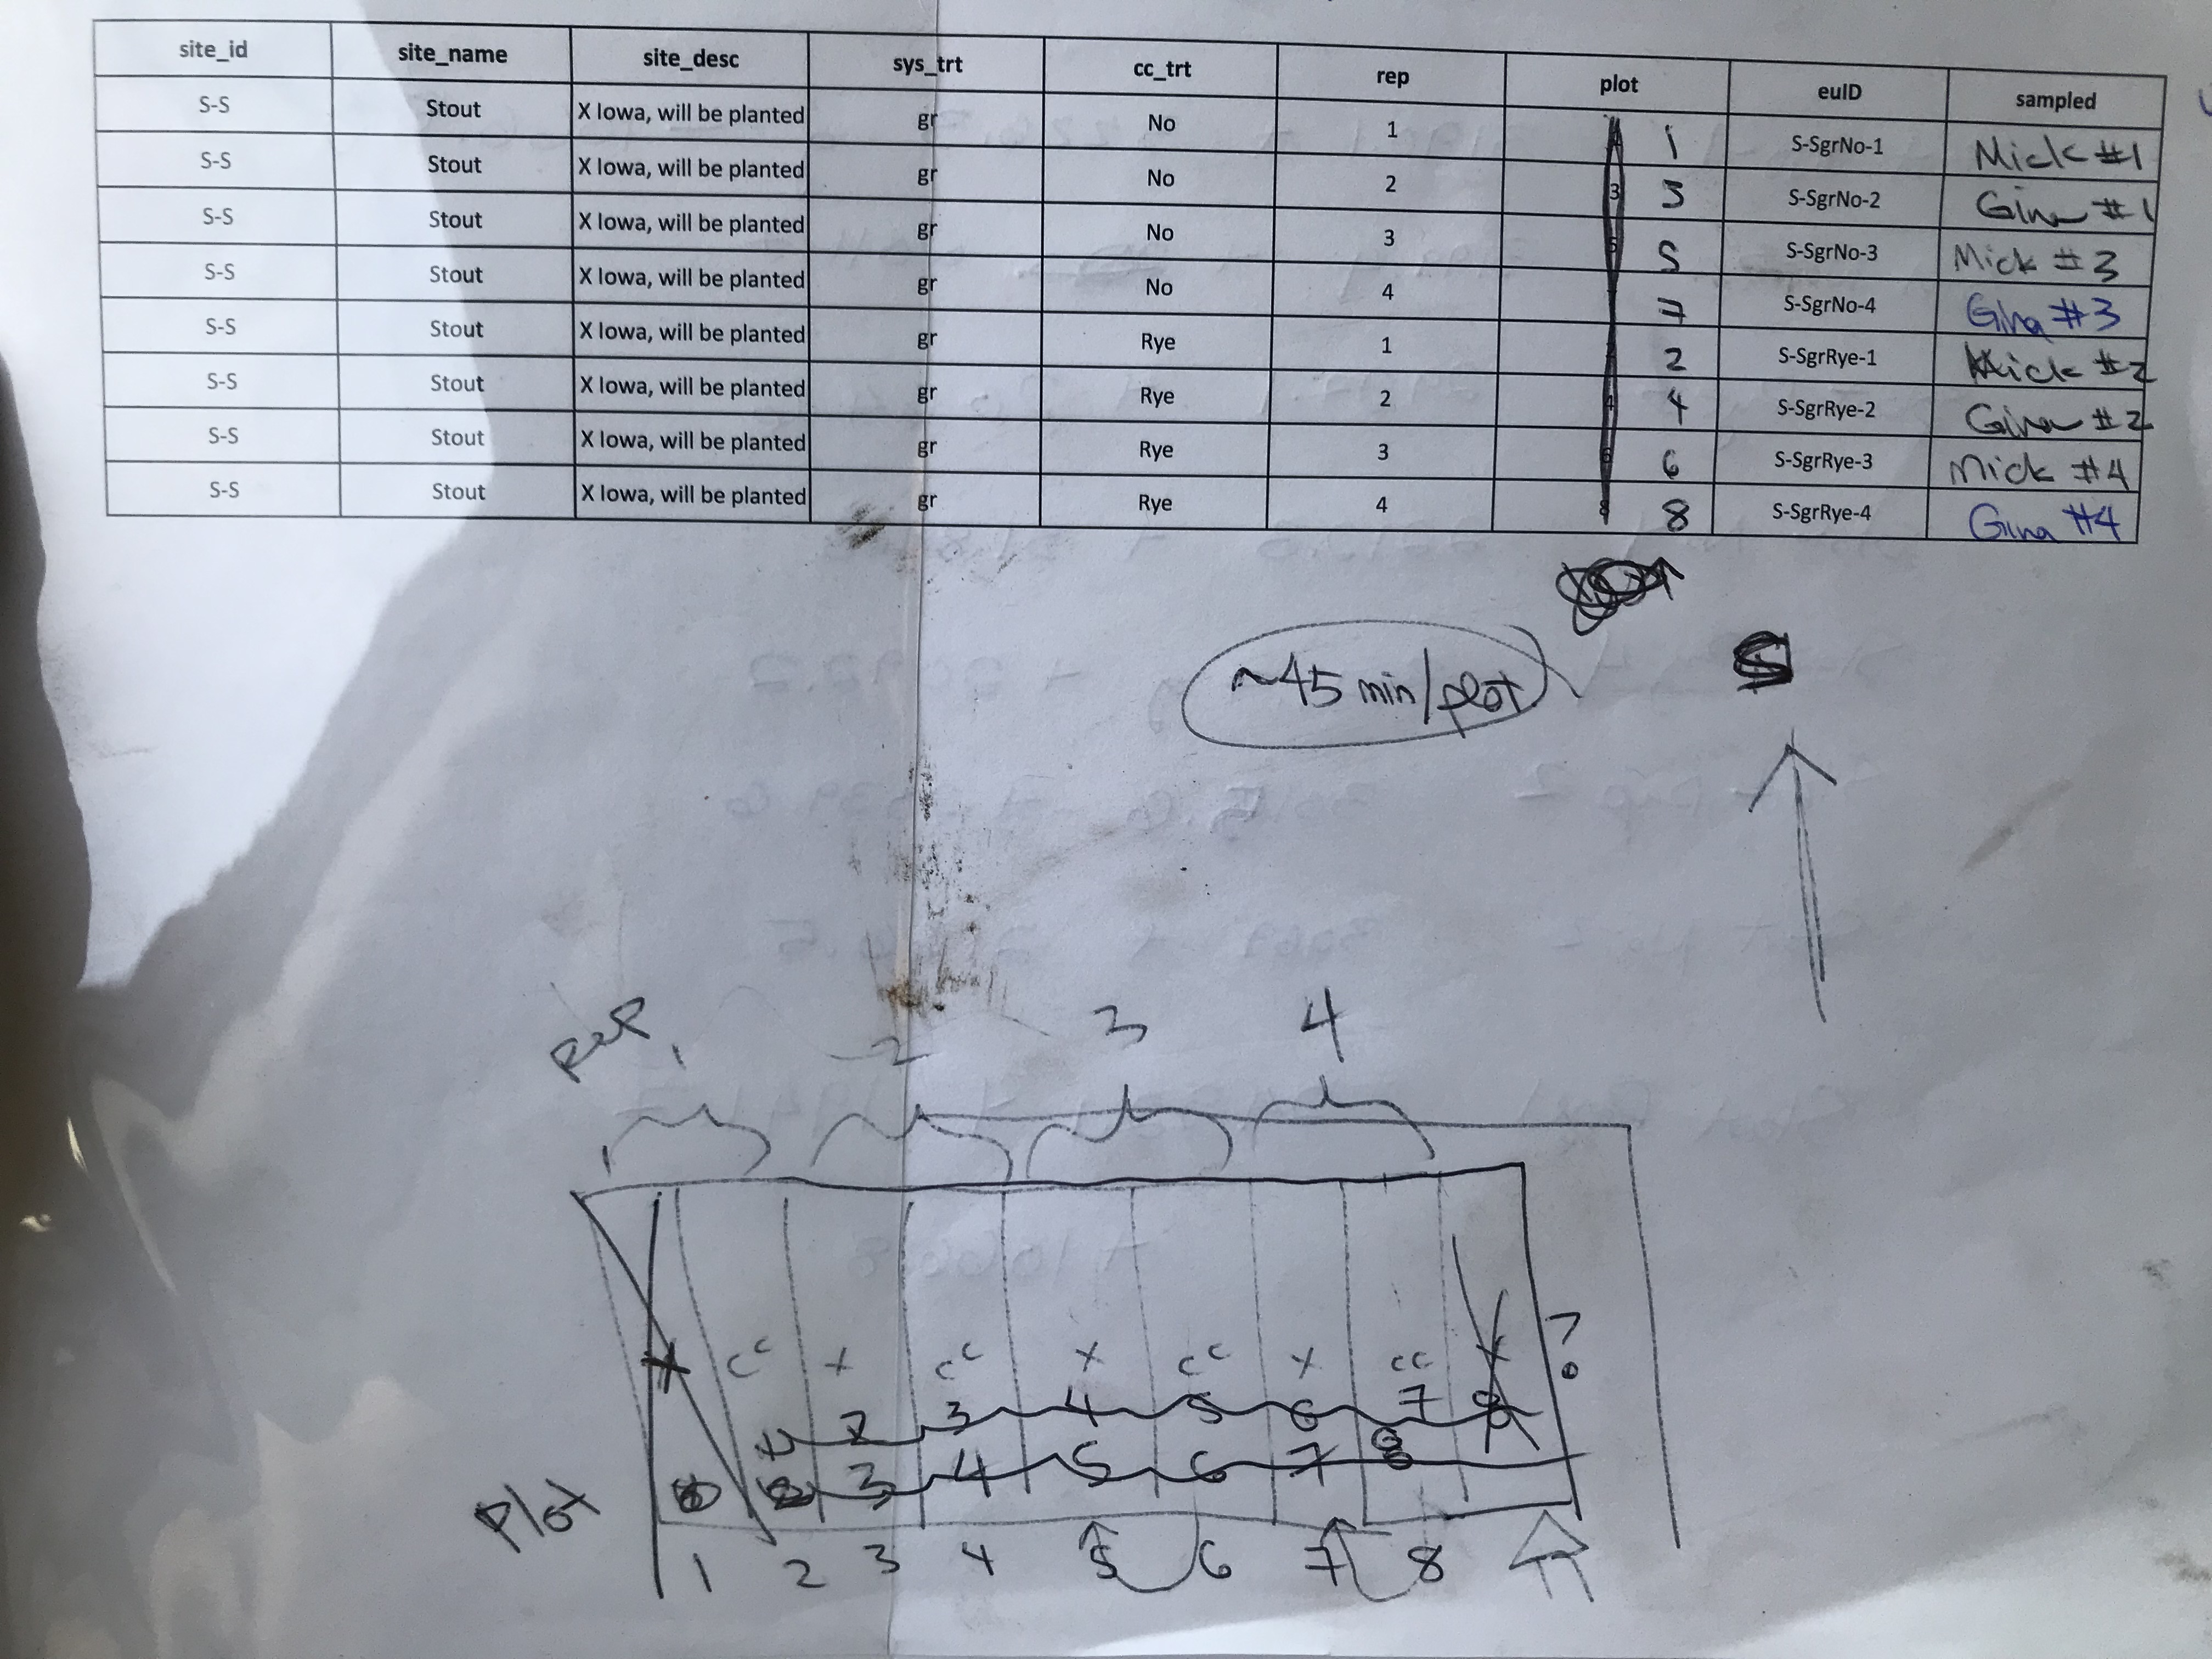 site_id site_name site_desc sys_trt cc_trt rep plot euID sampled
S-S Stout X Iowa, will be planted gr No 1 1 S-SgrNo-1 Mick #1
S-S Stout X Iowa, will be planted gr No 2 3 3 S-SgrNo-2 Gina #1
S-S Stout X Iowa, will be planted gr No 3 5 5 S-SgrNo-3 Mick #3
S-S Stout X Iowa, will be planted gr No 4 7 S-SgrNo-4 Gina #3
S-S Stout X Iowa, will be planted gr Rye 1 2 S-SgrRye-1 Mick #2
S-S Stout X Iowa, will be planted gr Rye 2 4 4 S-SgrRye-2 Gina #2
S-S Stout X Iowa, will be planted gr Rye 3 6 6 S-SgrRye-3 Mick #4
S-S Stout X Iowa, will be planted gr Rye 4 8 8 S-SgrRye-4 Gina #4
~45 min/plot
S
Rep 1 2 3 4
X cc X cc X cc X cc X ?
1 2 3 4 5 6 7 8
3 4 5 6 7 8
Plot
1 2 3 4 5 6 7 8